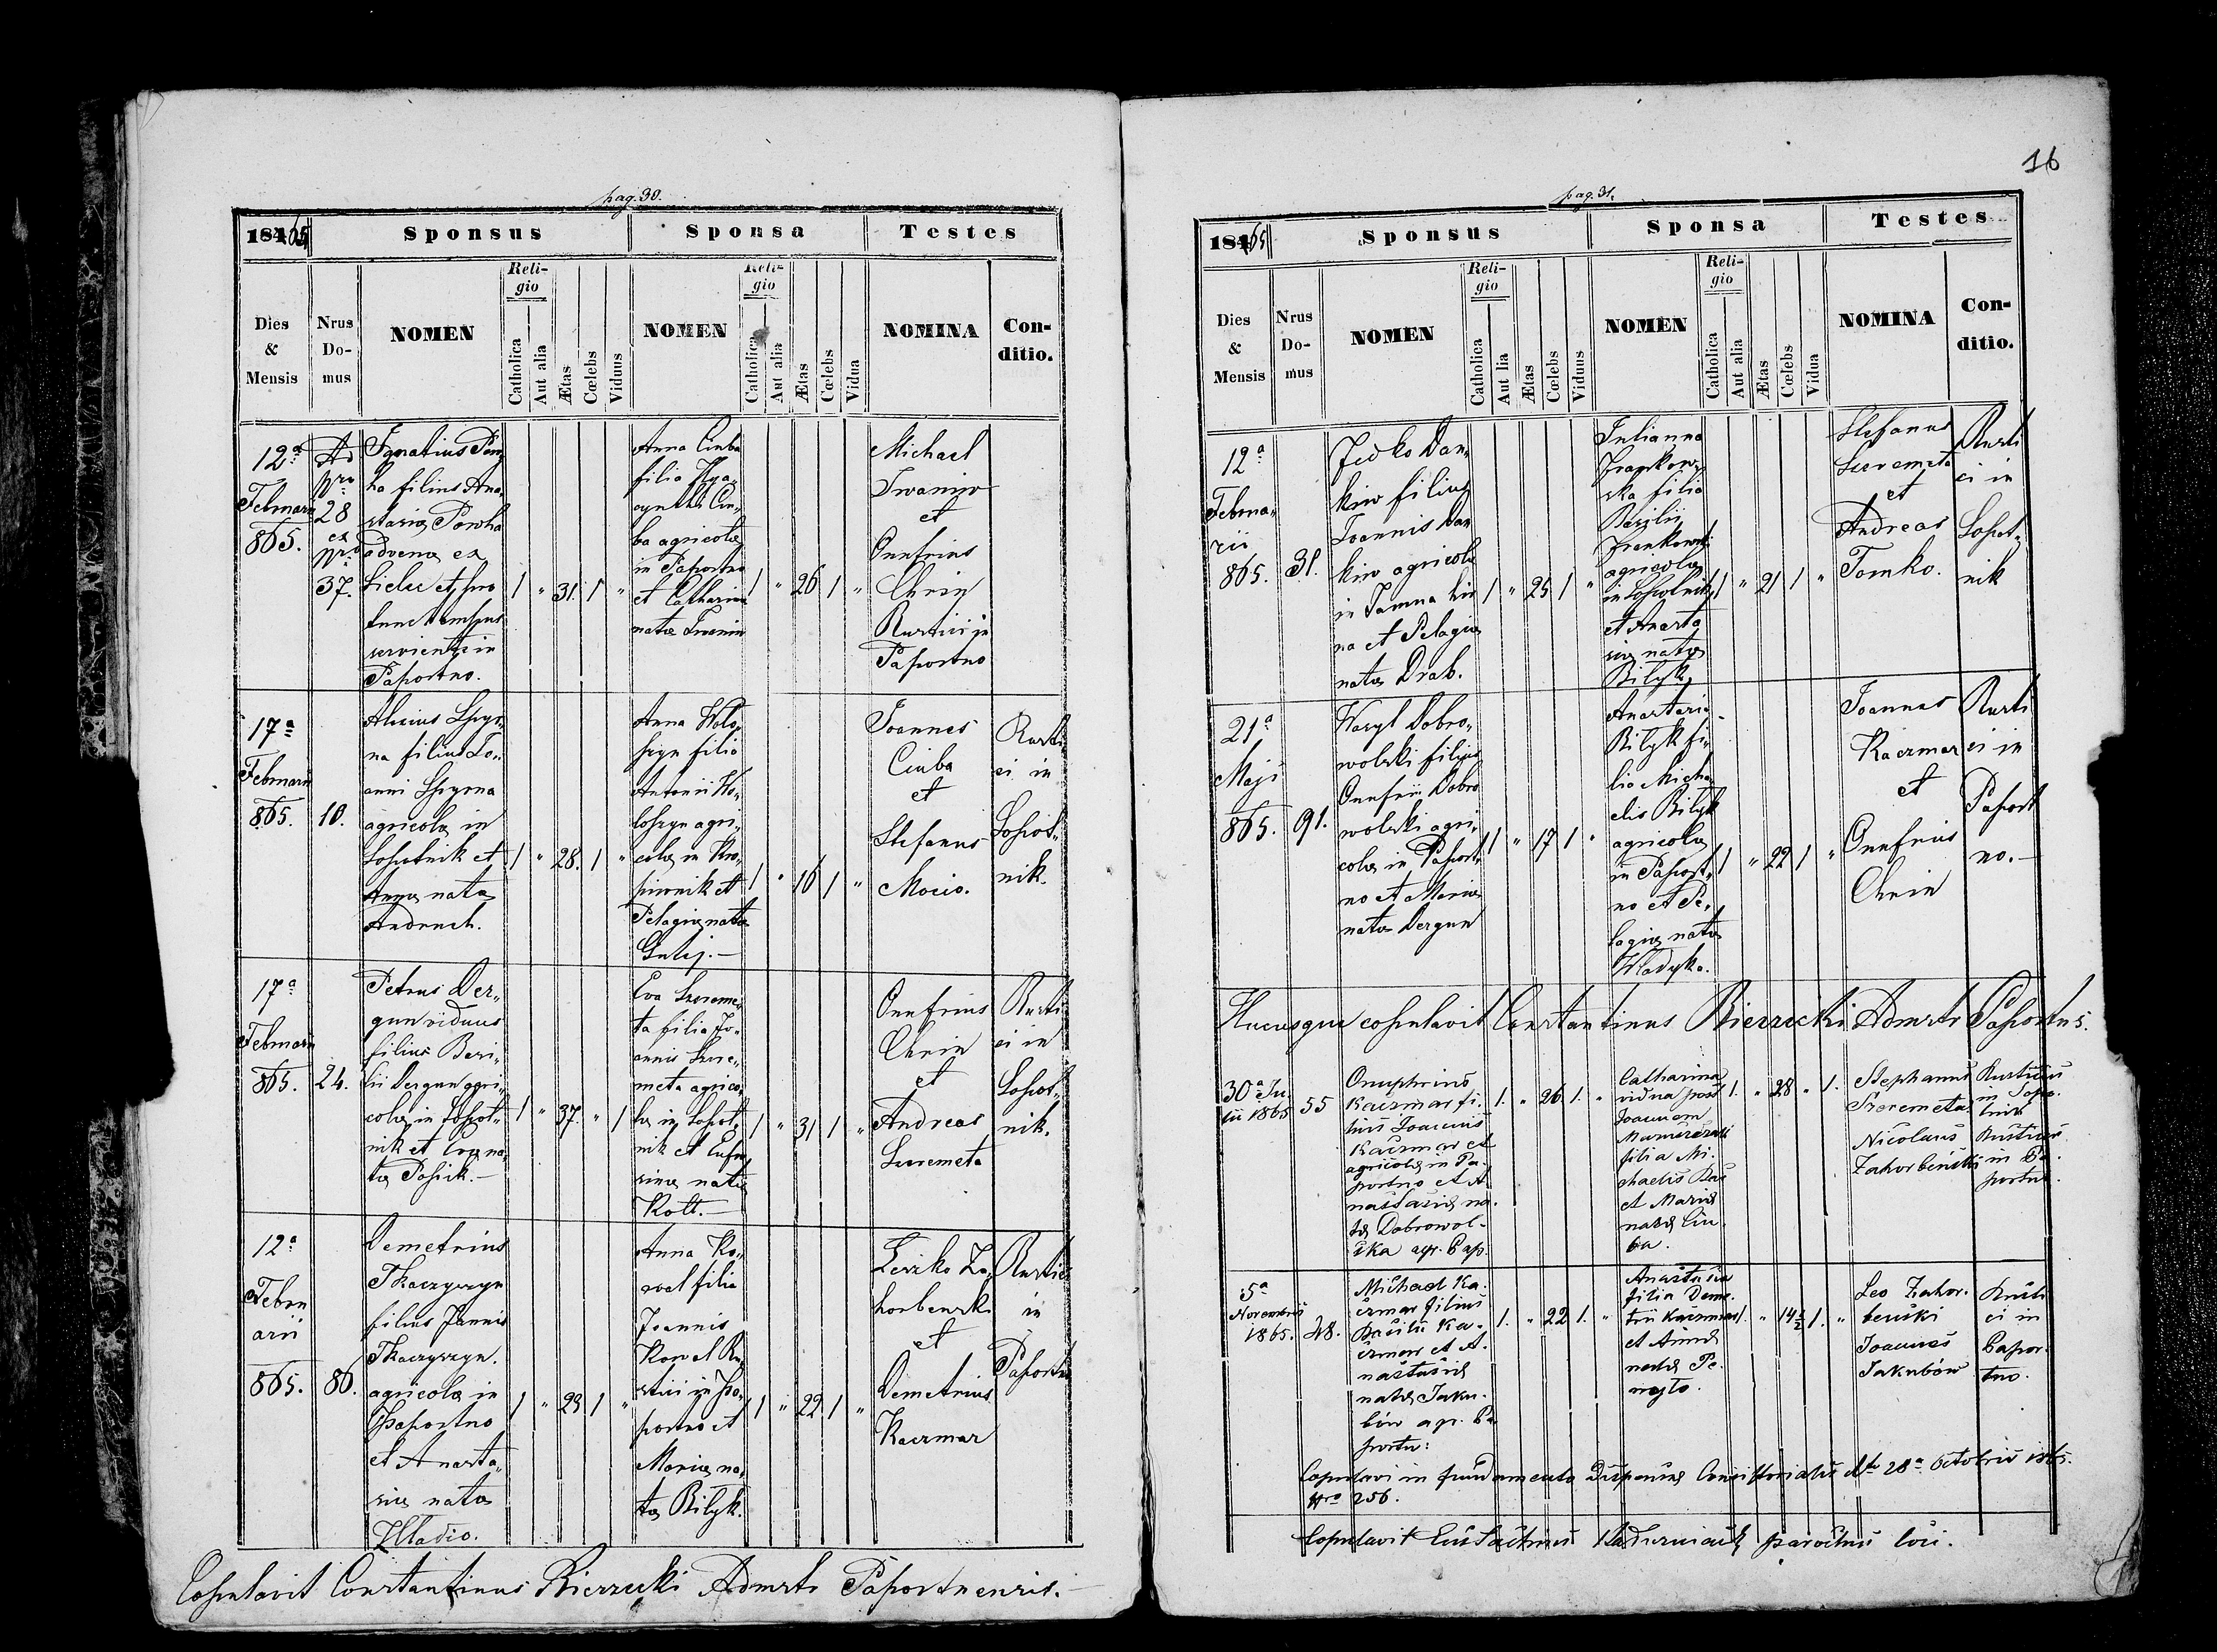 16
pag. 30.
1865
Sponsus
Sponsa
Testes
Dies & Mensis
Nrus Domus
NOMEN
Religio
Catholica
Aut alia
Ætas
Cœlebs
Viduus
NOMEN
Religio
Catholica
Aut alia
Ætas
Cœlebs
Vidua
NOMINA
Conditio.
12a
Februarii
865.
Ad
Nro
28
ex
Nro
37.
Ignatius
filius Ana
stasiæ
advenæ ex
pro
tunc tempus
servientis in
Paportno.
1 " 31. 1 "
Anna Ciuba
filia Hya
cynthi Ciu
ba agricolæ
in Paportno
et Catharina
natæ Iwaniw
1 " 26 1 "
Michael
Iwaniw
et
Onufrius
Chrin
Rustici in
Paportno
17a
Februarii
865.
10.
Alexius Spyr
na filius Io
anni Spyrna
agricolæ in
Łopotnik et
Annæ natæ
Andruch.
1 " 28. 1 "
Anna Woło
szyn filia
Antonii Wo
łoszyn agri
colæ in Kro
piwnik et
Pelagiæ natæ
Gulij.—
1 " 16 1 "
Joannes
Ciuba
et
Stefanus
Mocio.
Rusti
ci in
Łopot
nik.
17a
Februarii
865.
24.
Petrus Der
gun viduus
filius Basi
lii Dergun agri
colæ in Łopot
nik et Evæ na
tæ Posik.—
1 " 37. " 1
Eva Szereme
ta filia Jo
annis Szere
meta agrico
læ in Łopot
nik et Eufro
sinæ natæ
Kott.—
1 " 31 1 "
Onufrius
Chrin
et
Andreas
Szeremeta
Rusti
ci in
Łopot
nik.
12a
Febru
arii
865.
86.
Demetrius
Tkaczyszyn
filius Joannis
Tkaczyszyn.
agricolæ in
Paportno
et Anasta
siæ natæ
Hładio.
1 " 23 1 "
Anna Ko
wal filia
Joannis
Kowal Ru
stici in Pa
portno et
Mariæ na
tæ Bilyk.
1 " 22 1 "
Leszko Za
horbenski
et
Demetrius
Kaczmar
Rustici
in
Paportno
Copulavit Constantinus Bierzecki Admrtr Paportnensis.—
pag. 31.
1865
Sponsus
Sponsa
Testes
Dies & Mensis
Nrus Domus
NOMEN
Religio
Catholica
Aut lia
Ætas
Cœlebs
Viduus
NOMEN
Religio
Catholica
Aut alia
Ætas
Cœlebs
Vidua
NOMINA
Conditio.
12a
Februa
rii
865.
31.
Fedko Dan
kiw filius
Joannis Dan
kiw agricolæ
in Jamna
na et Pelagiæ
natæ Drab.
1 " 25 1 "
Julianna
Frankow
ska filia
Basilii
Frankowski
agricolæ
in Łopotnik
et Anasta
siæ natæ
Bilyk.
1 " 21 1 "
Stefanus
Szeremeta
et
Andreas
Tomko.
Rusti
ci in
Łopot
nik
21a
Maji
865.
91.
Wasyl Dobro
wolski filius
Onufrii Dobro
wolski agri
colæ in Paport
no et Mariæ
natæ Dergun
1 " 17 1 "
Anastasia
Bilyk fi
lia Micha
elis Bilyk
agricolæ
in Paport
no et Pe
lagiæ natæ
Wladyka.
1 " 22 1 "
Joannes
Kaczmar
et
Onufrius
Chrin
Rusti
ci in
Paport
no.—
Hucusque copulavit Constantinus Bierzecki Admrtr Paportns.
30a Ju
lii 1865
55
Onuphrius
Kaczmar fi.
lius Joannis
Kaczmar et
agricolæ in Pa
portno et A
nastasiæ na.
tæ Dobrowol-
ska agr. Pap.
1. " 26 1. "
Catharina
vidua post
Joannem
filia Mi.
chaelis
et Mariæ
natæ Ciu
ba.
1. " 28 " 1.
Stephanus
Szeremeta.
Nicolaus
Zahorbeński
Rusticus
in Łopo
tnik
Rusticus
in Pa
portno.
5a
Novembris
1865.
48.
Michael Ka
czmar filius
Basilii Ka
czmar et A.
nastasiæ
natæ Jaku.
bów agr. Pa
portn:
1. " 22 1. "
Anastasia
filia Deme.
trii Kaczmar
et Annæ
natæ Pe
rejto.
1. " 14½ 1. "
Leo Zahor.
beński
Joannes
Jakubów
Rusti
ci in
Papor.
tno.
Copulavi in fundamento Dispensæ Consistorialis dto 28a Octobris 1865.
Nro 256.
Copulavit Eustachius parochus loci.